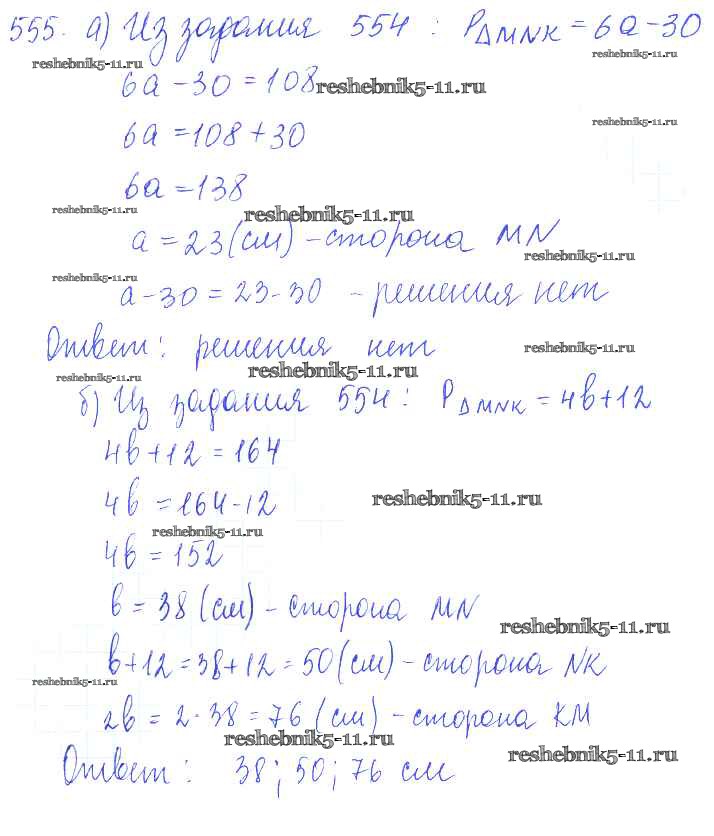 555. а) Из задания 554 : P△MNK = 6a - 30
reshebnik5-11.ru reshebnik5-11.ru
6a - 30 = 108 reshebnik5-11.ru
6a = 108 + 30 reshebnik5-11.ru
6a = 138
reshebnik5-11.ru reshebnik5-11.ru
a = 23 (см) - сторона MN
reshebnik5-11.ru
reshebnik5-11.ru
a - 30 = 23 - 30 - решения нет
Ответ: решения нет reshebnik5-11.ru
reshebnik5-11.ru reshebnik5-11.ru
б) Из задания 554: P△MNK = 4b + 12
4b + 12 = 164
4b = 164 - 12 reshebnik5-11.ru
reshebnik5-11.ru
4b = 152
b = 38 (см) - сторона MN
reshebnik5-11.ru
b + 12 = 38 + 12 = 50 (см) - сторона NK
reshebnik5-11.ru
2b = 2 · 38 = 76 (см) - сторона KM
reshebnik5-11.ru
reshebnik5-11.ru
Ответ: 38; 50; 76 см